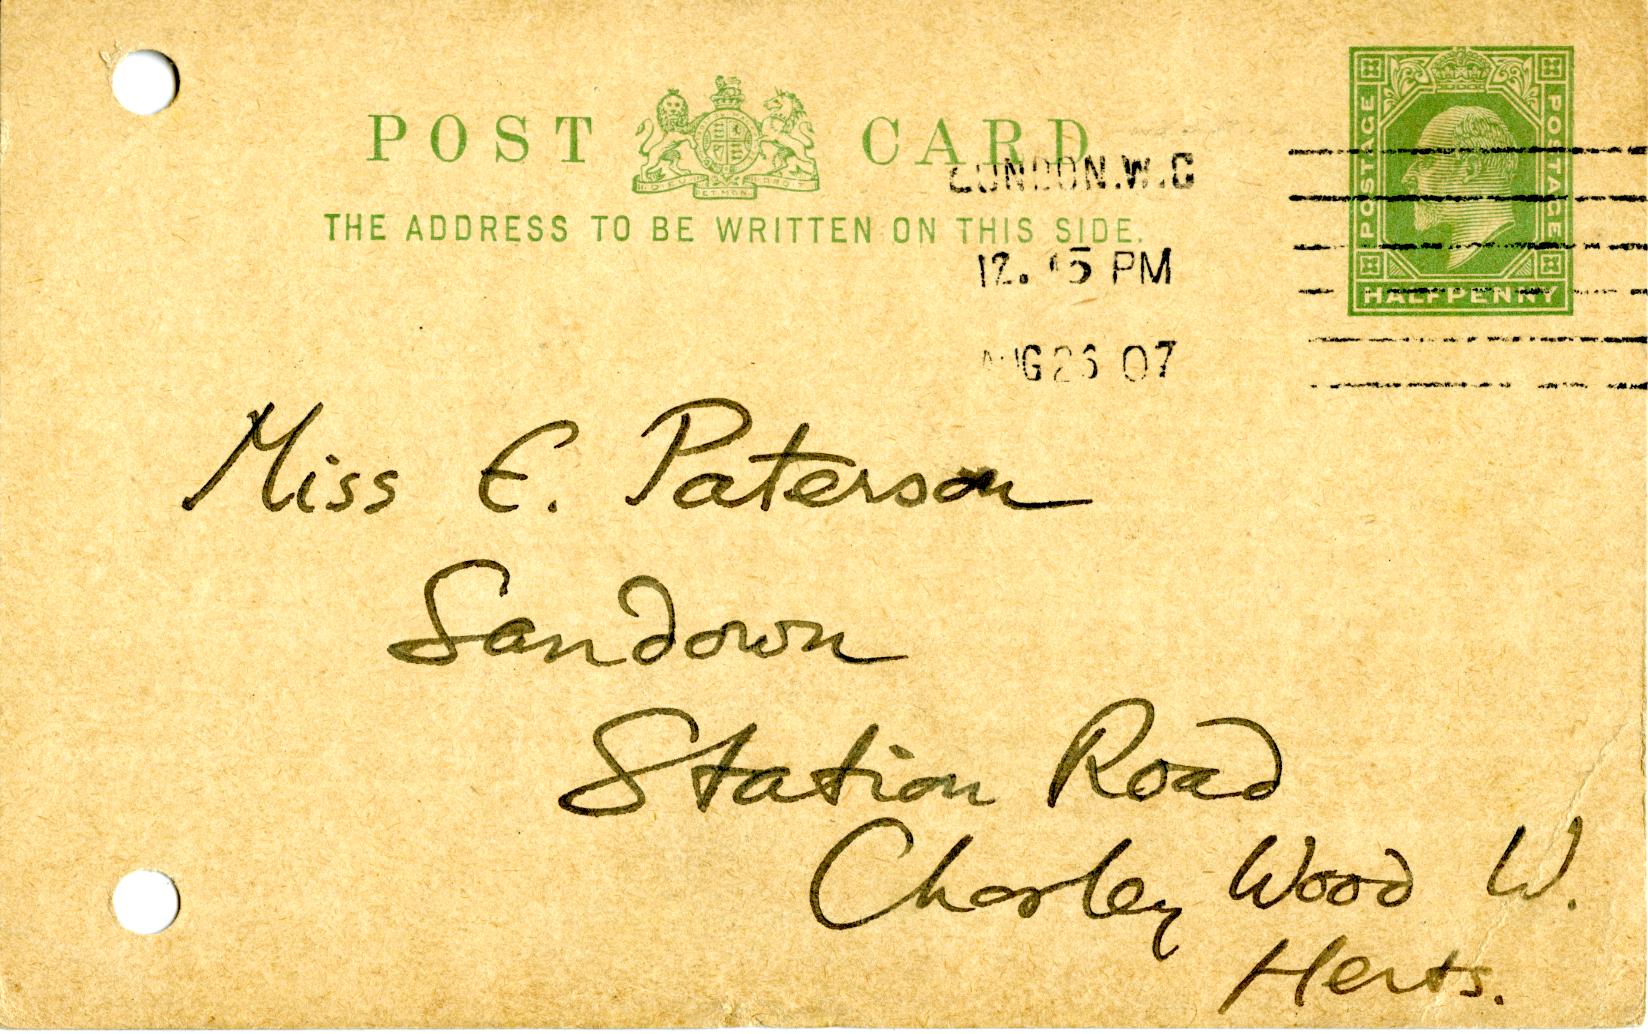 POST CARD
THE ADDRESS TO BE WRITTEN ON THIS SIDE.
POSTAGE
POSTAGE
HALFPENNY
LONDON.W.C
12. 5 PM
AUG 26 07
Miss E. Paterson
Sandown
Station Road
Chorley Wood W.
Herts.